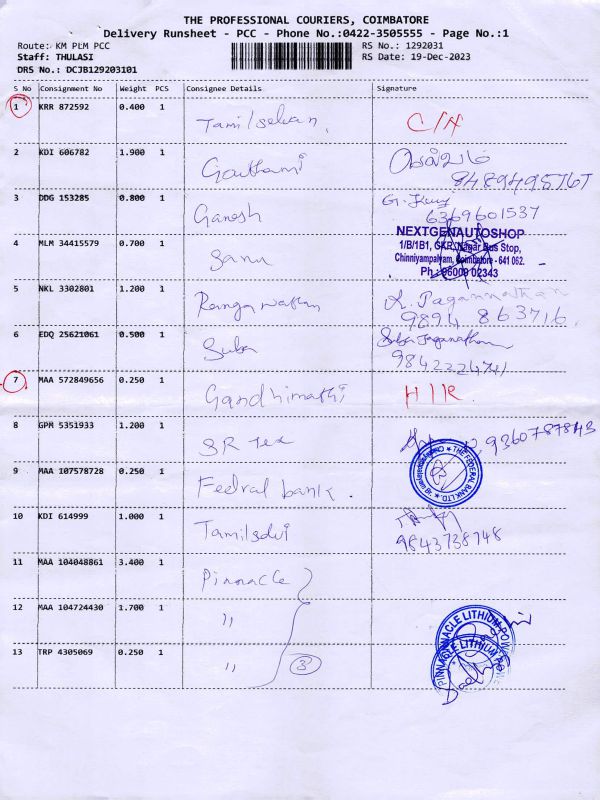 THE PROFESSIONAL COURIERS, COIMBATORE
Delivery Runsheet - PCC - Phone No.:0422-3505555 - Page No.:1
Route: KM PLM PCC
RS No.: 1292031
Staff: THULASI
RS Date: 19-Dec-2023
DRS No.: DCJB129203101
S No Consignment No Weight PCS Consignee Details Signature
1 KRR 872592 0.400 1 Tamilselvan, C/A
2 KDI 606782 1.900 1 Gouthami
8489495767
3 DDG 153285 0.800 1 Ganesh
6369601537
4 MLM 34415579 0.700 1 Sanu
NEXTGENAUTOSHOP
1/B/1B1, GKR, Nagar Bus Stop,
Chinniyampalyam, Coimbatore - 641 062.
Ph : 96009 02343
5 NKL 3302801 1.200 1 Ranganathan
9894 863716
6 EDQ 25621061 0.500 1 Suba Suba Jaganathan
9842224741
7 MAA 572849656 0.250 1 Gandhimathi H/R
8 GPM 5351933 1.200 1 SR Tex 9360787843
9 MAA 107578728 0.250 1 Fedral bank. THE FEDERAL BANK LTD.
10 KDI 614999 1.000 1 Tamilselvi
9843738748
11 MAA 104048861 3.400 1 Pinnacle
12 MAA 104724430 1.700 1 ,,
PINNACLE LITHIUM POW
13 TRP 4305069 0.250 1 ,, 3
PINNACLE LITHIUM POWE